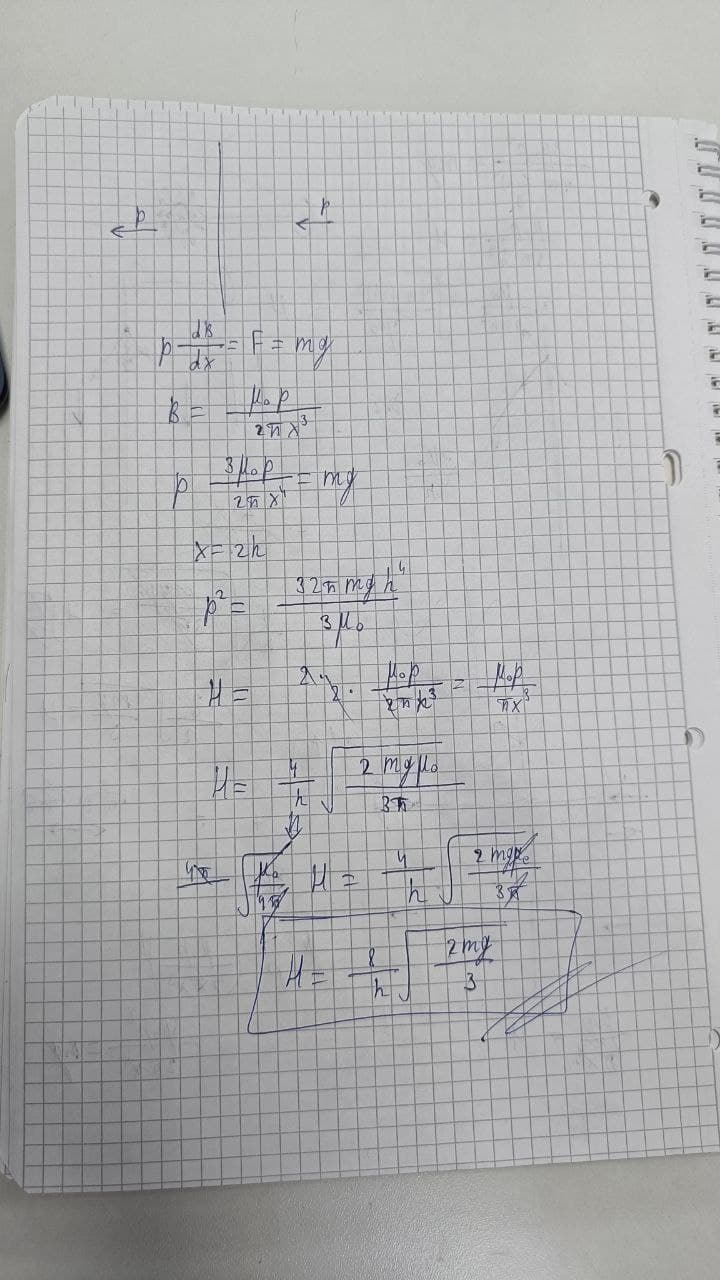 p p
p dB/dx = F = mg
B = μ₀p / 2πx³
p 3μ₀p / 2πx⁴ = mg
x = 2h
p² = 32π mg h⁴ / 3μ₀
H = 2 · μ₀p / 2πx³ = μ₀p / πx³
H = 4/h √(2mgμ₀ / 3π)
√(μ₀ / 4π) H = 4/h √(2mgμ₀ / 3π)
H = 8/h √(2mg / 3)